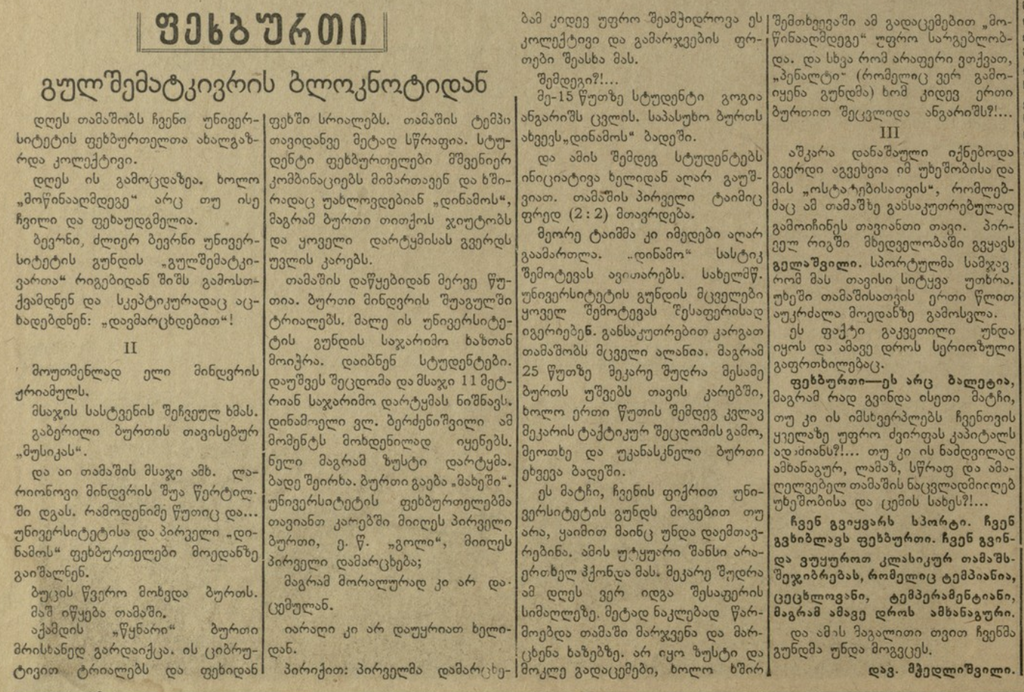 ფეხბურთი
გულშემატკივრის ბლოკნოტიდან
დღეს თამაშობს ჩვენი უნივერ-
სიტეტის ფეხბურთელთა ახალგაზ-
რდა კოლექტივი.
დღეს ის გამოცდაზეა. ხოლო
„მოწინააღმდეგე“ არც თუ ისე
ჩვილი და ფეხაუდგმელია.
ბევრნი, ძლიერ ბევრნი უნივერ-
სიტეტის გუნდის „გულშემატკი-
ვართა“ რიგებიდან შიშს გამოსთ-
ქვამდნენ და სკეპტიკურადაც აც-
ხადებდნენ: „დავმარცხდებით“!
II
მოუთმენლად ელი მინდვრის
ჟრიამულს.
მსაჯის სასტვენის შეჩვეულ ხმას.
გაბერილი ბურთის თავისებურ
„მუსიკას“.
და აი თამაშის მსაჯი ამხ. ლა-
რიონოვი მინდვრის შუა წერტილ-
ში დგას. რამოდენიმე წუთიც და...
უნივერსიტეტისა და პირველი „დი-
ნამოს“ ფეხბურთელები მოედანზე
გაიშალნენ.
ბუცის წვერო მოხვდა ბურთს.
მაშ იწყება თამაში.
აქამდის „წყნარი“ ბურთი
მრისხანედ გარდაიქცა. ის ციბრუ-
ტივით ტრიალებს და ფეხიდან
ფეხში სრიალებს. თამაშის ტემპი
თავიდანვე მეტად სწრაფია. სტუ-
დენტი ფეხბურთელები მშვენიერ
კომბინაციებს მიმართავენ და ხში-
რადაც უახლოვდებიან „დინამოს“,
მაგრამ ბურთი თითქოს ჯიუტობს
და ყოველი დარტყმისას გვერდს
უვლის კარებს.
თამაშის დაწყებიდან მერვე წუ-
თია. ბურთი მინდვრის შუაგულში
ტრიალებს. მალე ის უნივერსიტე-
ტის გუნდის საჯარიმო ხაზთან
მოიჭრა. დაიბნენ სტუდენტები.
დაუშვეს შეცდომა და მსაჯი 11 მეტ-
რიან საჯარიმო დარტყმას ნიშნავს.
დინამოელი ვლ. ბერძენიშვილი ამ
მომენტს მოხდენილად იყენებს.
ნელი მაგრამ ზუსტი დარტყმა.
ბადე შეირხა. ბურთი გაება „მახეში“.
უნივერსიტეტის ფეხბურთელებმა
თავიანთ კარებში მიიღეს პირველი
ბურთი, ე. წ. „გოლი“, მიიღეს
პირველი დამარცხება;
მაგრამ მორალურად კი არ და-
ცემულან.
იარაღი კი არ დაუყრიათ ხელი-
დან.
პირიქით: პირველმა დამარცხე-
ბამ კიდევ უფრო შეამჭიდროვა ეს
კოლექტივი და გამარჯვების ფრ-
თები შეასხა მას.
შემდეგი?!...
მე-15 წუთზე სტუდენტი გოგია
ანგარიშს ცვლის. საპასუხო ბურთს
ახვევს „დინამოს“ ბადეში.
და ამის შემდეგ სტუდენტებს
ინიციატივა ხელიდან აღარ გაუშ-
ვიათ. თამაშის პირველი ტაიმიც
ფრედ (2:2) მთავრდება.
მეორე ტაიმმა კი იმედები აღარ
გაამართლა. „დინამო“ სასტიკ
შემოტევას ავითარებს. სახელმწ.
უნივერსიტეტის გუნდის მცველები
ყოველ შემოტევას შესაფერისად
იგერიებენ. განსაკუთრებით კარგათ
თამაშობს მცველი ალანია. მაგრამ
25 წუთზე მეკარე შუდრა მესამე
ბურთს უშვებს თავის კარებში,
ხოლო ერთი წუთის შემდეგ კვლავ
მეკარის ტაქტიკურ შეცდომის გამო,
მეოთხე და უკანასკნელი ბურთი
ეხვევა ბადეში.
ეს მატჩი, ჩვენის ფიქრით უნი-
ვერსიტეტის გუნდს მოგებით თუ
არა, ყაიმით მაინც უნდა დაემთავ-
რებინა. ამის უტყუარი შანსი არა-
ერთხელ ჰქონდა მას. მეკარე შუდრა
ამ დღეს ვერ იდგა შესაფერის
სიმაღლეზე. მეტად ნაკლებად წარ-
მოებდა თამაში მარჯვენა და მარ-
ცხენა ხაზებზე. არ იყო ზუსტი და
მოკლე გადაცემები, ხოლო ხშირ
შემთხვევაში ამ გადაცემებით „მო-
წინააღმდეგე“ უფრო სარგებლობ-
და. და სხვა რომ არაფერი ვთქვათ,
„პენალტი“ (რომელიც ვერ გამო-
იყენა გუნდმა) ხომ კიდევ ერთი
ბურთით შეცვლიდა ანგარიშს?!...
III
აშკარა დანაშაული იქნებოდა
გვერდი აგვეხვია იმ უხეშობისა და
მის „ოსტატებისათვის“, რომლებ-
მაც ამ თამაშზე განსაკუთრებულად
გამოიჩინეს თავიანთი თავი. პირ-
ველ რიგში მხედველობაში გვყავს
გელაშვილი. სპორტულმა სამჯავ
რომ მას თავისი სიტყვა უთხრა.
უხეში თამაშისათვის ერთი წლით
აუკრძალა მოედანზე გამოსვლა.
ეს ფაქტი გაკვეთილი უნდა
იყოს და ამავე დროს სერიოზული
გაფრთხილებაც.
ფეხბურთი—ეს არც ბალეტია,
მაგრამ რად გვინდა ისეთი მატჩი,
თუ კი ის იმსხვერპლებს ჩვენთვის
ყველაზე უფრო ძვირფას კაპიტალს
ადამიანს?!... თუ კი ის ნამდვილად
ამხანაგურ, ლამაზ, სწრაფ და ამა-
ღელვებელ თამაშის ნაცვლად მიიღებ
უხეშობისა და ცემის სახეს?!...
ჩვენ გვიყვარს სპორტი. ჩვენ
გვხიბლავს ფეხბურთი. ჩვენ გვინ-
და ვუყუროთ კლასიკურ თამაშს-
შეჯიბრებას, რომელიც ტემპიანია,
ცეცხლოვანი, ტემპერამენტიანი,
მაგრამ ამავე დროს ამხანაგური.
და ამის მაგალითი თვით ჩვენმა
გუნდმა უნდა მოგვცეს.
დავ. მჭედლიშვილი.